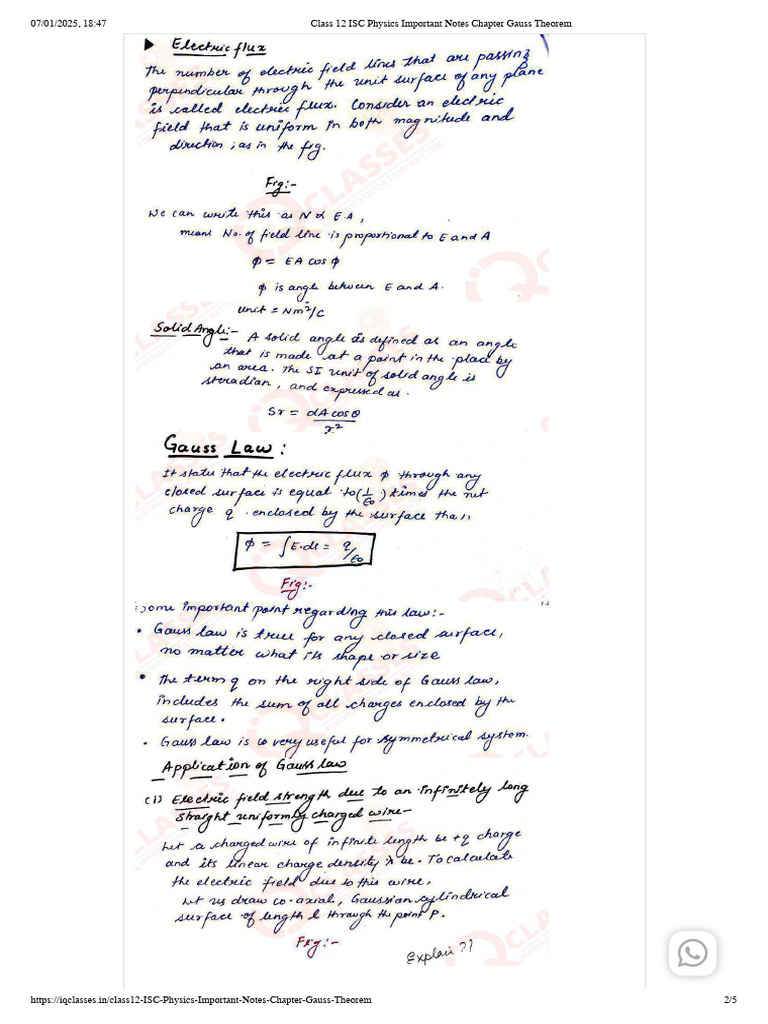 07/01/2025, 18:47 Class 12 ISC Physics Important Notes Chapter Gauss Theorem
▶ Electric flux
The number of electric field lines that are passing
perpendicular through the unit surface of any plane
is called electric flux. Consider an electric
field that is uniform in both magnitude and
direction, as in the fig.
Fig:-
We can write this as N ∝ E A,
means No. of field line is proportional to E and A
ϕ = EA cos ϕ
ϕ is angle between E and A.
unit = Nm²/C
Solid Angle:- A solid angle is defined as an angle
that is made at a point in the place by
an area. The SI unit of solid angle is
steradian, and expressed as.
Sr = dA cosθ
r²
Gauss Law:
It states that the electric flux ϕ through any
closed surface is equal to (1/ε0) times the net
charge q enclosed by the surface
ϕ = ∫E.ds = q/ε0
Fig:-
some important point regarding this law:-
• Gauss law is true for any closed surface,
no matter what its shape or size
• The term q on the right side of Gauss law,
includes the sum of all charges enclosed by the
surface.
• Gauss law is very useful for symmetrical system.
Application of Gauss law
(i) Electric field strength due to an infinitely long
straight uniformly charged wire-
Let a charged wire of infinite length be +q charge
and its linear charge density λ be. To calculate
the electric field due to this wire,
Let us draw co-axial, Gaussian cylindrical
surface of length l through the point P.
Fig:-
Explain ??
https://iqclasses.in/class12-ISC-Physics-Important-Notes-Chapter-Gauss-Theorem 2/5